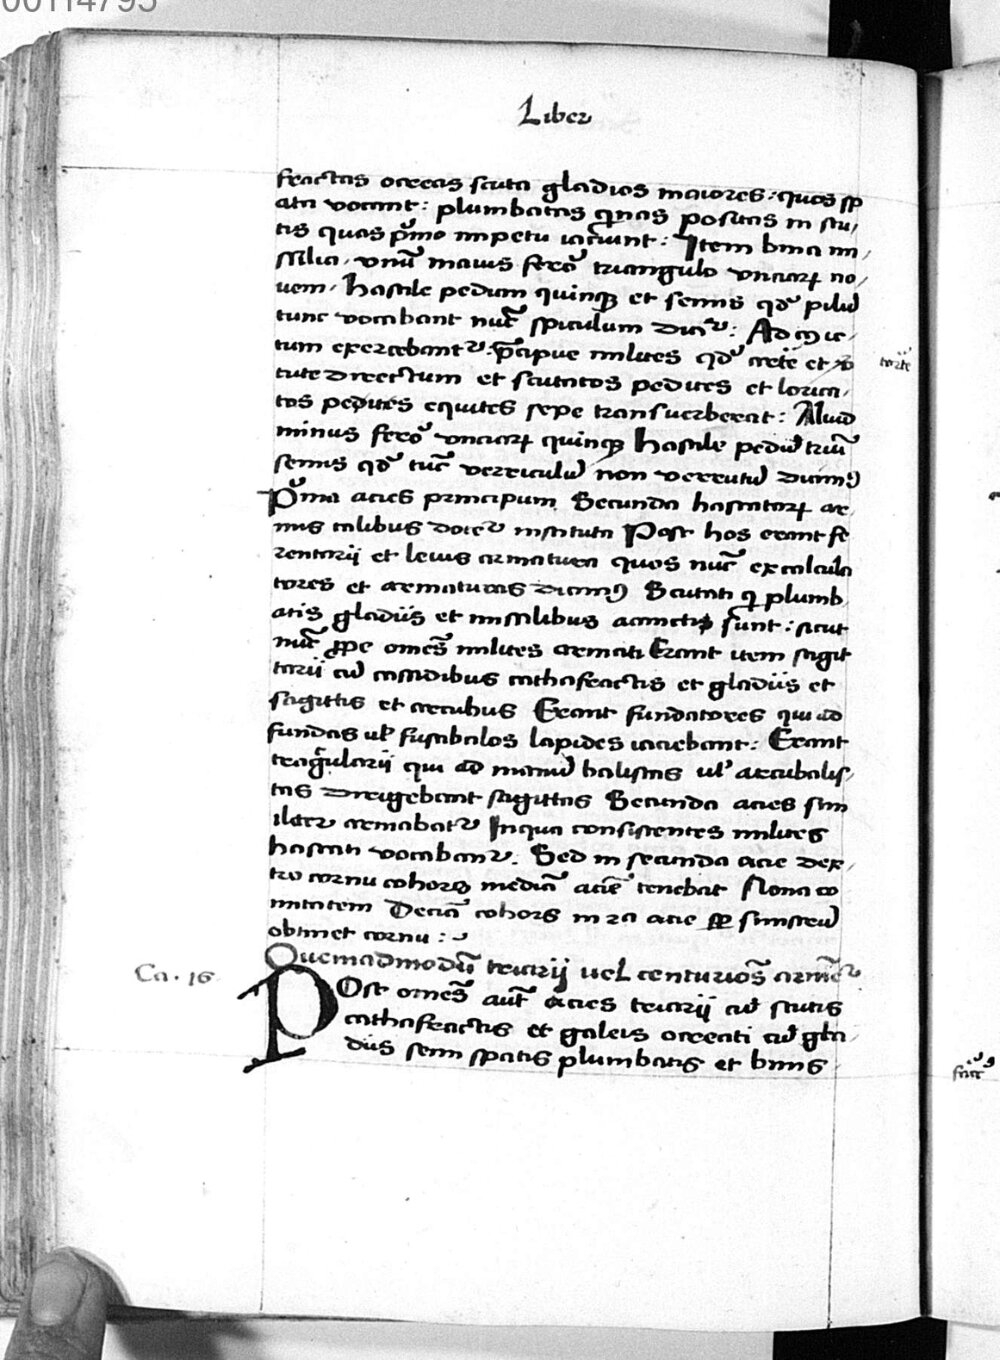 00114795
Liber
fractas ocreas scuta gladios maiores: quos sp
ata vocant: plumbatas quinas positas in scu,
tis quas pͥmo impetu iaciunt: Item bina mi,
ssilia, vnū maius ferro triangulo vnciarꝝ no,
uem, hastile pedum quinqꝫ et semis qđ pilū
tunc vocabant nūc spiculum dicitᷣ: Ad cuiꝰ ic,
tum exercebantᷣ p̄cipue milites qđ arte et vir
tute directum et scutatos pedites et lorica,
tos pedites equites sepe transuerberat: Aliud
minus ferro vnciarꝝ quinqꝫ hastile pedū triū
semis qđ tūc verriculū non verrutū dicimꝰ
Pͥma acies principum Secunda hastatorꝝ ar
mis talibus docetᷣ instituta Post hos erant fe
rentarij et leuis armatura quos nūc exculca
tores et armaturas dicimꝰ Scutati qͥ plumb,
atis gladiis et missilibus accincti sunt: sicut
nūc ꝓpe omēs milites armati Erant item sagit
tarij cū cassidibus cathafractis et gladiis et
sagittis et arcubus Erant fundatores qui ad
fundas uł fustibalos lapides iaciebant: Erant
tragularij qui ad manū balistas uł arcubalis,
tas dirigebant sagittas Secunda acies sim
iliter armabatᷣ Inqua consistentes milites
hastati vocabantᷣ. Sed in secunda acie dex,
tro cornu cohors mediā aciē tenebat Nona co
mitatem Deciā cohors in 2a acie ꝑ sinistrū
obtinet cornu :~
torte
Ca. 16
Quemadmodū triarij uel centurioēs armētᷣ
Post omēs aut̄ acies triarij cū scutis
cathafractis et galeis ocreati cū gla,
diis semi spatis plumbatis et binis